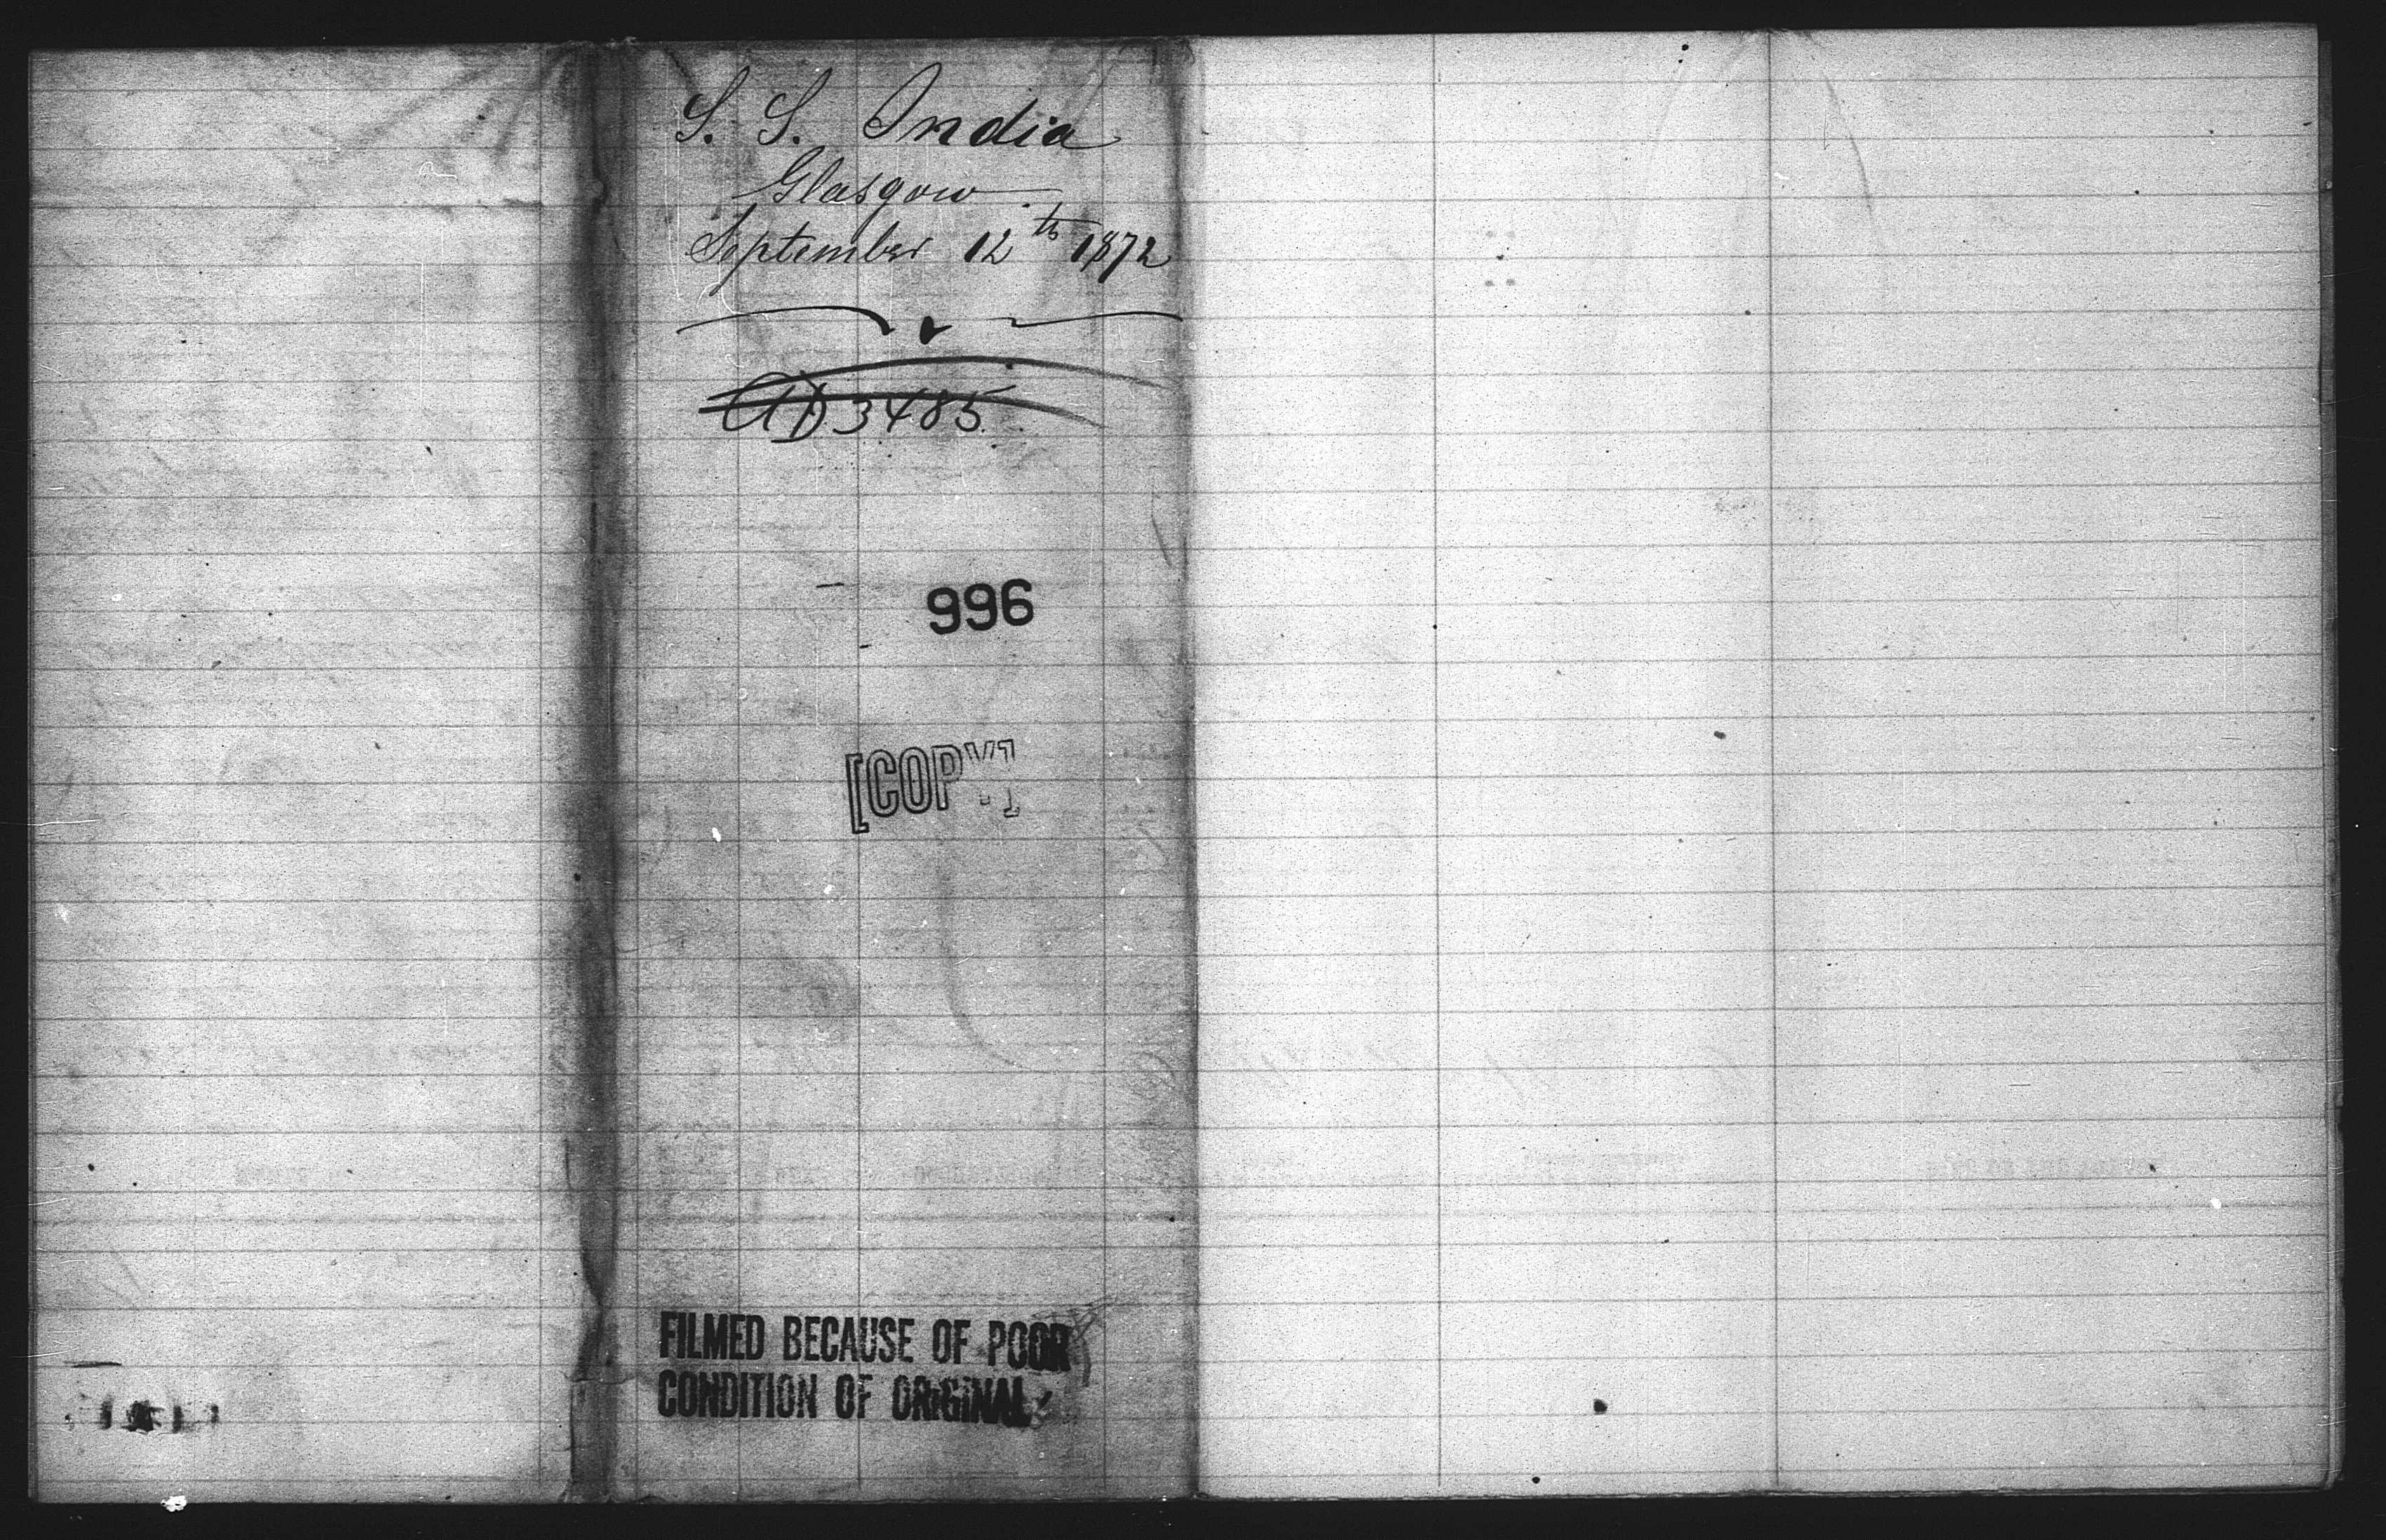 S. S. India
Glasgow
September 12th 1872
3485
996
[COPY]
FILMED BECAUSE OF POOR
CONDITION OF ORIGINAL